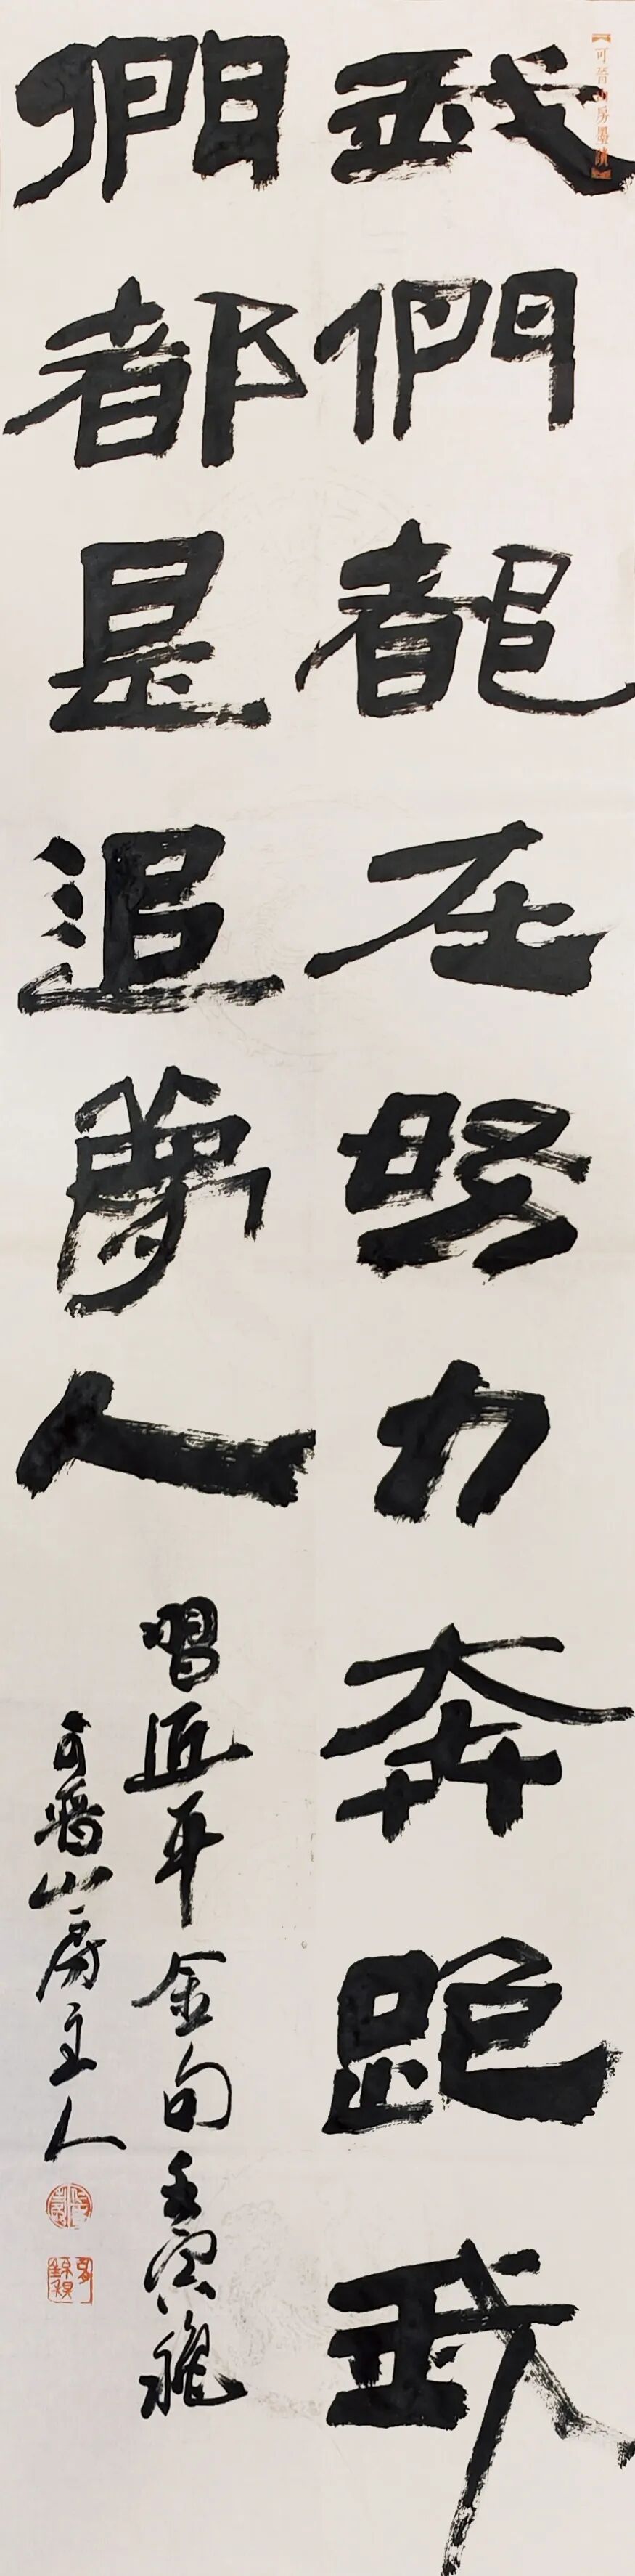 我們都在努力奔跑我
們都是追夢人
習近平金句壬寅
可晉山房主人
可晉山房墨蹟